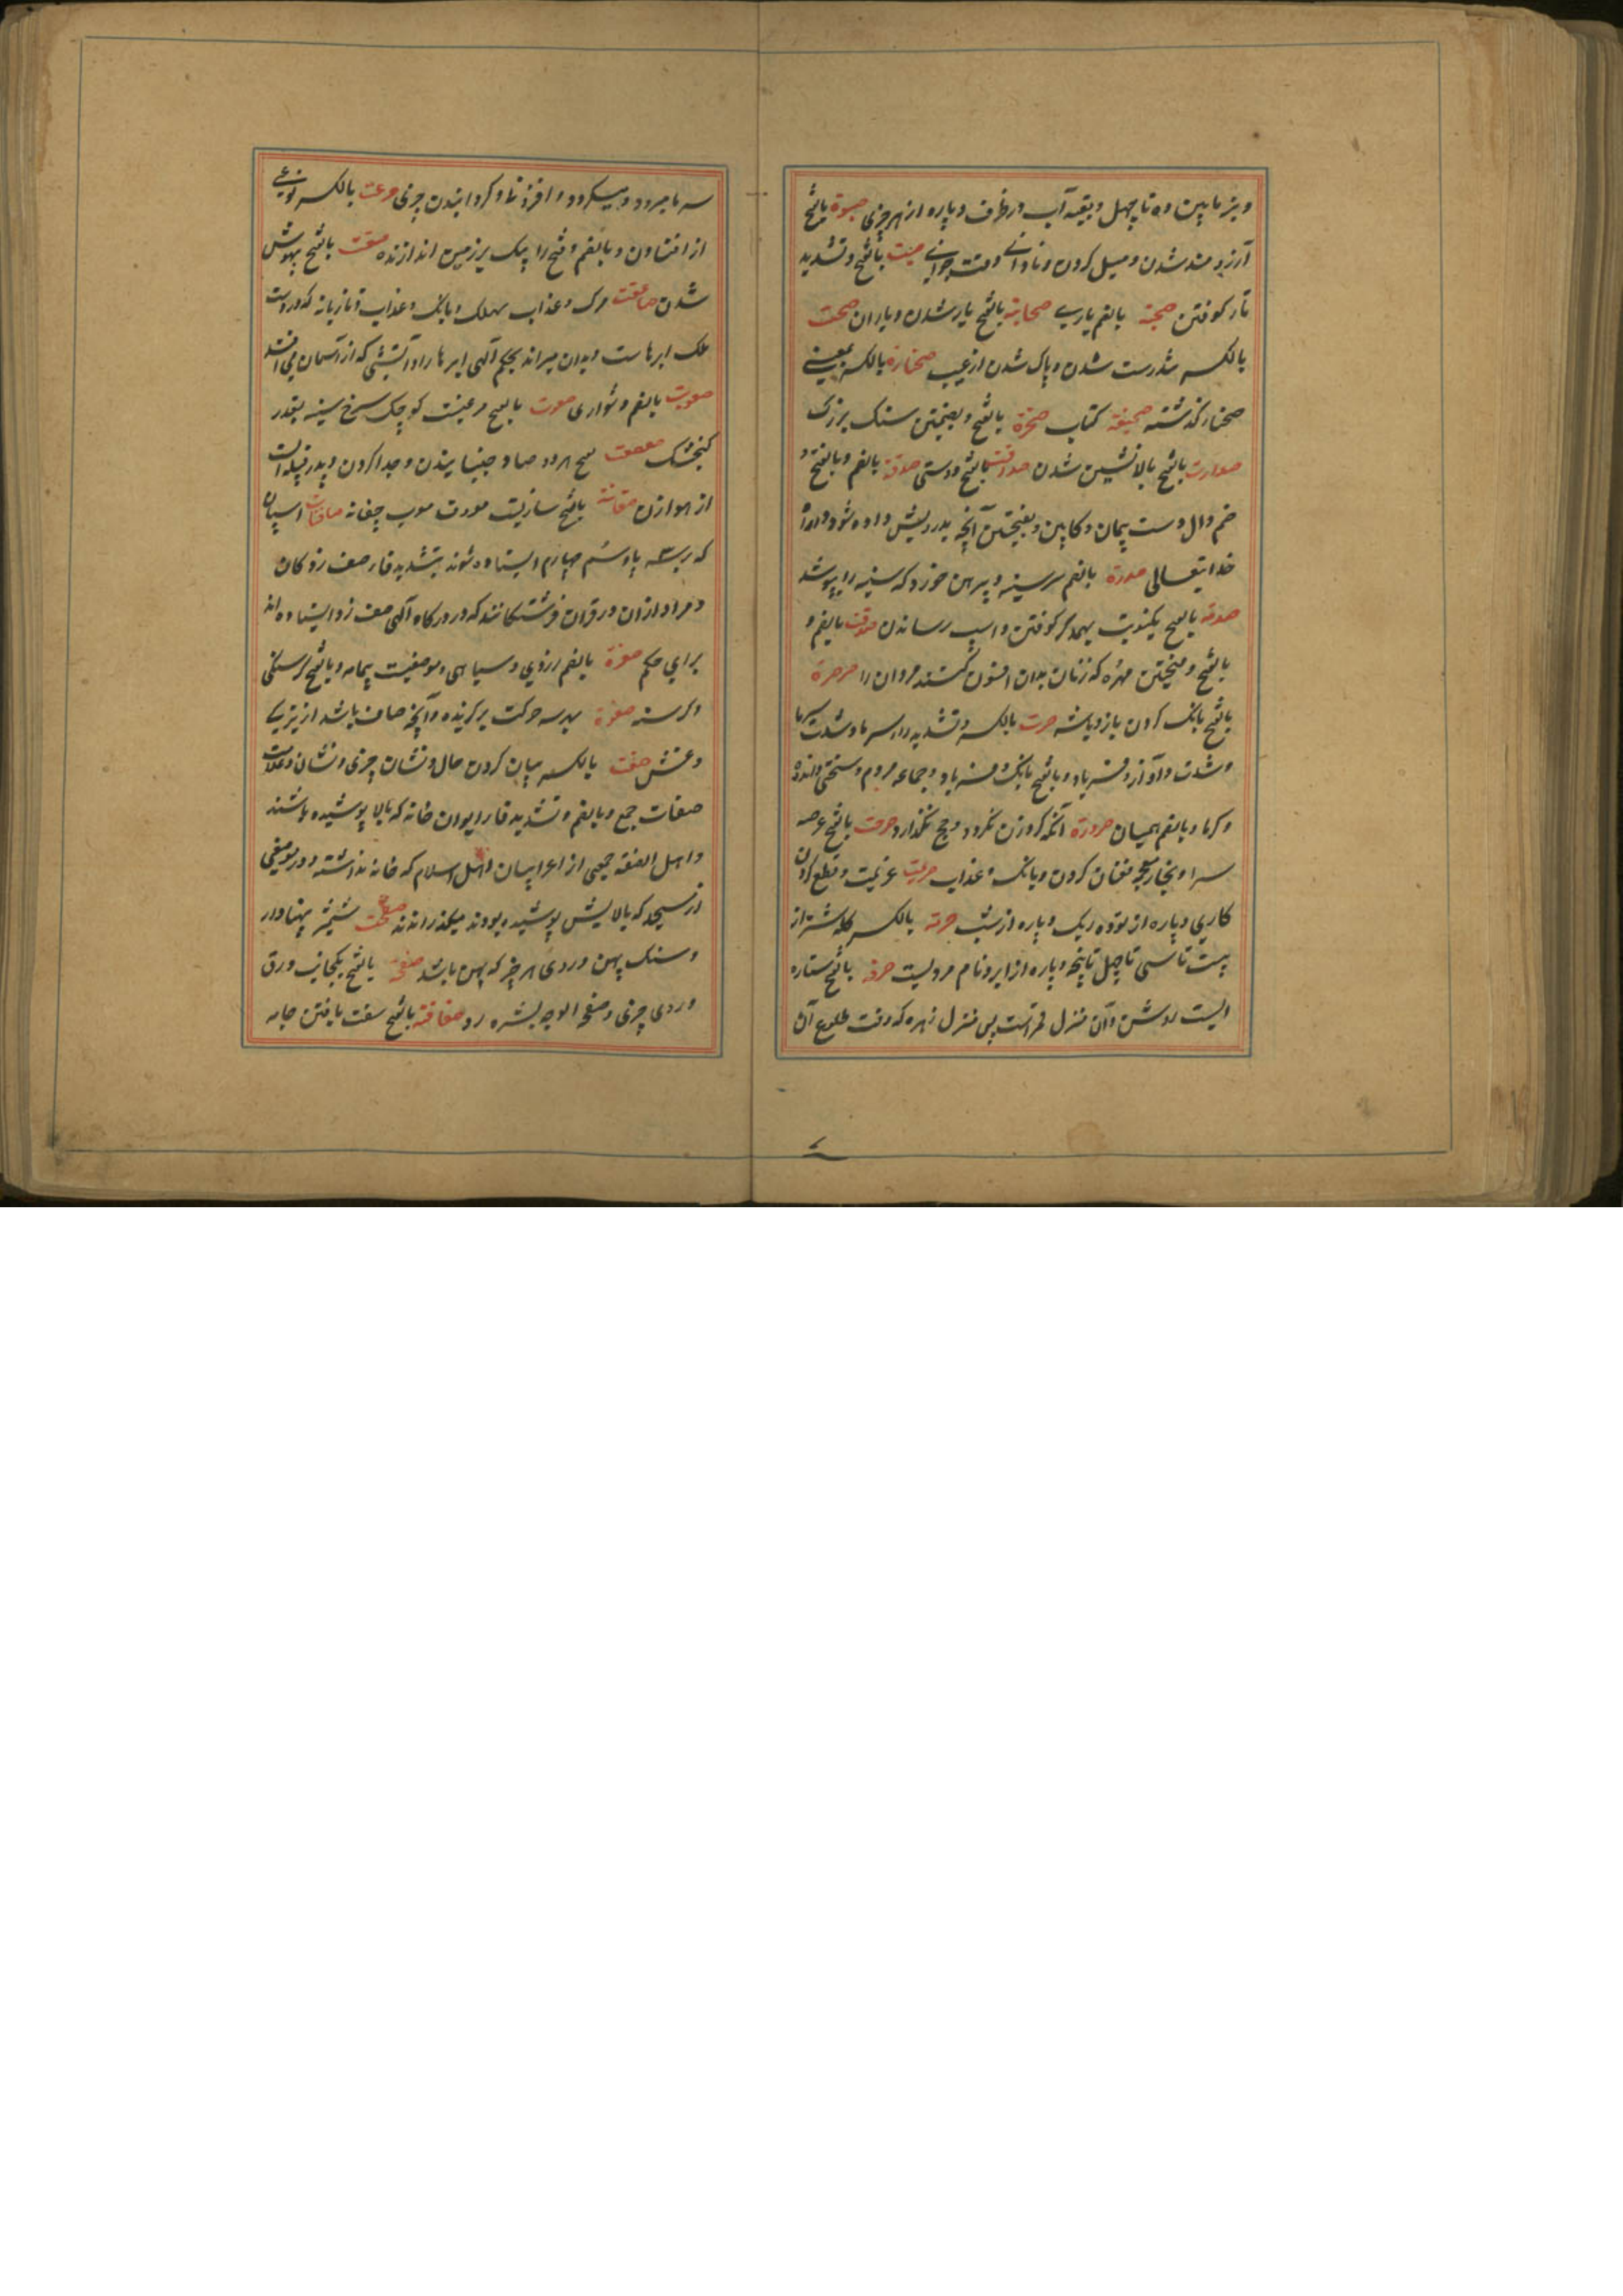 و بز مابین ده تا چهل و بقیه آب در ظرف و پاره از هر چیزی صبوة بالفتح
آرزومند شدن و میل کردن و نادانی و وقت جوانی بالفتح و تشدید
تار کوفتن صحبة بالضم یاری صحابة بالفتح یار شدن و یاران صحت
بالکسر تندرست شدن و پاک شدن از عیب بالکسر بمعنی
صخار گذشته صحیفة کتاب صخرة بالفتح و بفتحتین سنگ بزرگ
صدارت بالفتح بالانشین شدن صداقت بالفتح دوستی صدقة بالضم و بالفتح و
ضم دال دست پیمان و کابین و بفتحتین آنچه بدرویش داده شود در راه
خدایتعالی صدرة بالضم سر سینه و پیرهن خورد که سینه را بپوشد
صدمة بالفتح یکنوبت بهمدیگر کوفتن و آسیب رساندن بالضم و
بالفتح و فتحتین مهره که زنان بدان افسون کنند مردان را صرصرة
بالفتح بانک کردن باز و باشه صرت بالکسر و تشدید را سرما و شدت سرما
و شدت و آواز و فریاد و بالفتح بانک و فریاد و جماعه مردم و سختی و اندوه
و گرما و بالضم همیان صرورة آنکه کرد زن نگردد و حج نگذارد صرحت بالفتح عرصه
سرا فغان کردن و بانک و عذاب صریمت عزیمت و قطع کردن
کاری و پاره از توده ریک و پاره از شب صرمة بالکسر گله شتر از
بیست تا سی تا چهل تا پنجه و پاره از ابر و نام مردیست صرفة بالفتح ستاره
ایست روشن و آن منزل قمر است پس منزل زبره که وقت طلوع آن
سرما میرود و بالکسر نوعی
از افتادن و بالضم و فتح را بیک بر زمین اندازنده صعقت بالفتح بیهوش
شدن صاعقت مرک و عذاب مهلک و بانک و عذاب و تازیانه که در دست
ملک ابرهاست و بدان میراند بحکم آلهی ابرها را و آتشی که از آسمان می افتد
صعوبت بالضم دشواری صعوت بالفتح مرغیست کوچک سرخ سینه بقدر
کنجشک صعصعت بفتح هر دو صاد جنبانیدن و جدا کردن و پدر قبیله ایست
از هوازن صغانة بالفتح سازیست معروف معرب چغانه صافنات اسپان
که بر سه پا و سم چهارم ایستاده شوند بتشدید فا صف زدکان
و مراد ازان در قران فرشتکانند که در درکاه آلهی صف زده ایستاده اند
برای حکم صفرة بالضم زردی و سیاهی و موضعیست بیمامه و بالفتح کرسنکی
و کرسنه صفوة بهر سه حرکت برگزیده و آنچه صاف باشد از چیزی
صفت بالکسر بیان کردن حال و نشان چیزی و نشان و علامت
صفات جمع و بالضم و تشدید فا ایوان خانه که بالا پوشیده باشند
و اهل الصفه جمعی از اعرابیان و اهل اسلام که خانه نداشتند و در موضعی
از مسجد که بالایش پوشیده بودند میگذرانیدند شمشیر پهناور
و سنک پهن و روی هر چیز که پهن باشد صفحة بالفتح یکجانب ورق
و روی چیزی و صفح الوجه بشره رو صفاقة بالفتح سفت بافتن جامه